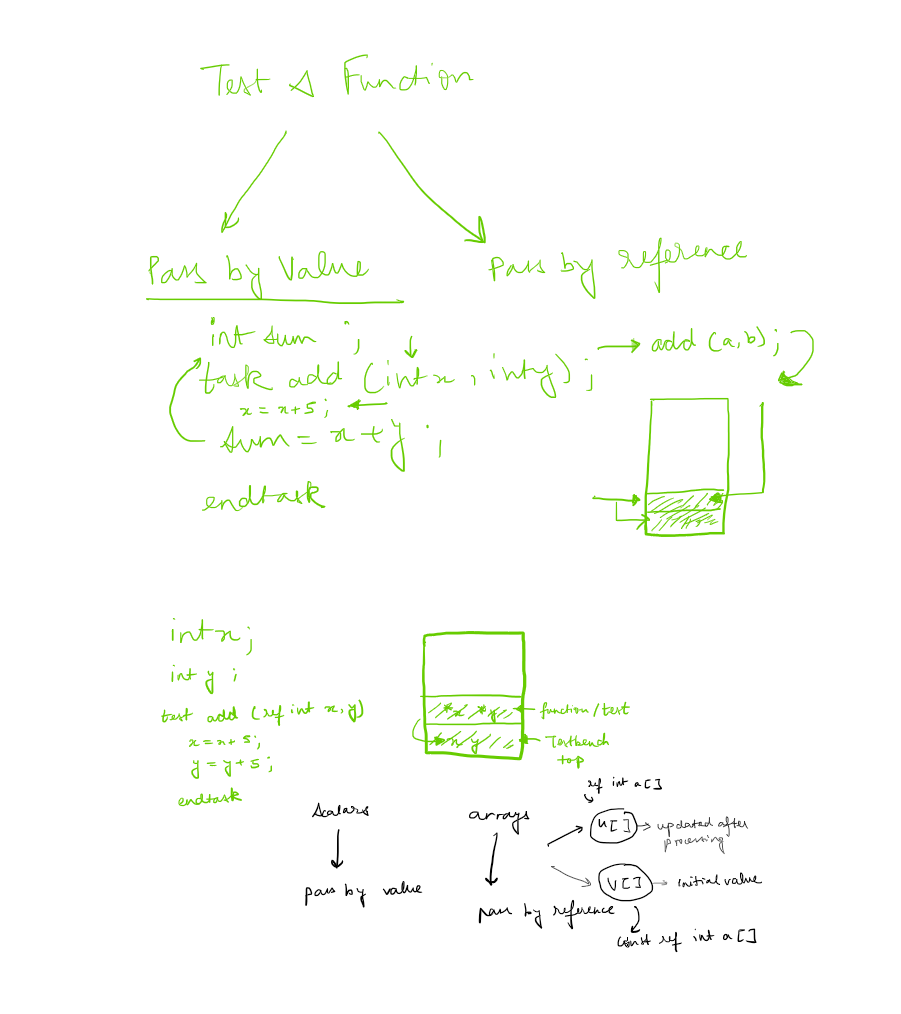 Test & Function
Pass by Value
Pass by reference
int sum ;
task add (int x, int y) ;
x = x+5 ;
sum = x + y ;
endtask
add (a,b) ;
int x ;
int y ;
test add (ref int x, y)
x = x+5 ;
y = y+5 ;
endtask
*x *y
function/test
x y
Testbench
top
Scalars
pass by value
arrays
pass by reference
ref int a[]
u[]
updated after
processing
v[]
initial value
const ref int a[]